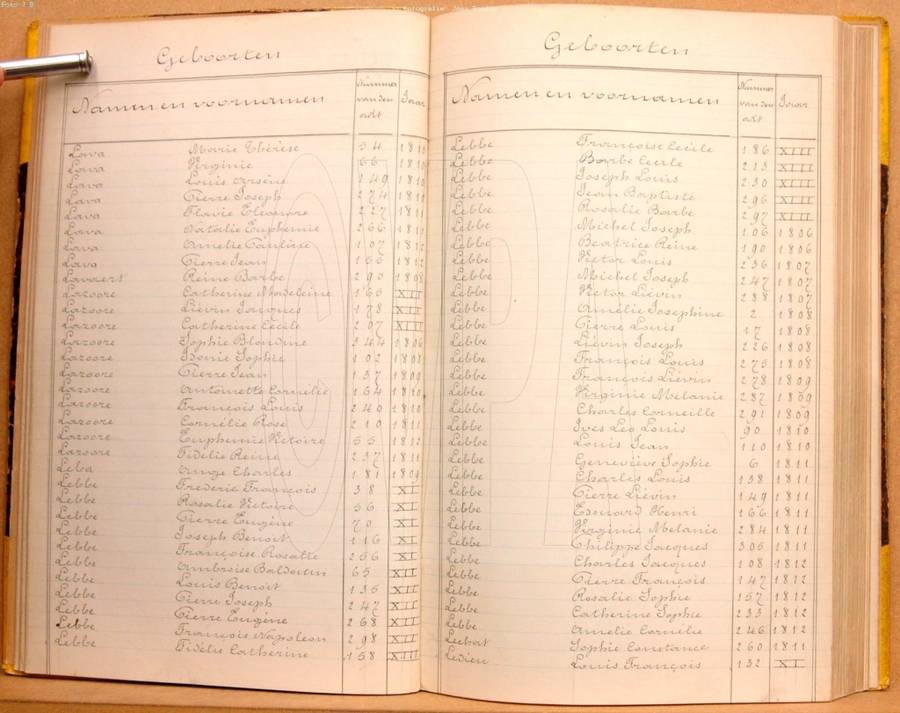 Geboorten
Namen en voornamen Nummer van den akt Jaar
Lava Marie Thérèse 54 1810
Lava Virginie 66 1810
Lava Louis Arsène 149 1810
Lava Pierre Joseph 274 1810
Lava Flavie Eléonore 227 1811
Lava Natalie Euphemie 266 1811
Lava Amelie Pauline 107 1812
Lava Pierre Jean 155 1812
Lavaert Reine Barbe 290 1808
Lazoore Catherine Madeleine 165 XII
Lazoore Liévin Jacques 178 XII
Lazoore Catherine Cecile 207 XIII
Lazoore Sophie Blondine 344 1806
Lazoore Idonie Sophie 102 1808
Lazoore Pierre Jean 137 1809
Lazoore Antoinette Cornélie 164 1810
Lazoore François Louis 249 1810
Lazoore Cornélie Rose 210 1811
Lazoore Euphemie Victoire 55 1812
Lazoore Fidélie Reine 237 1811
Leba Ange Charles 181 1809
Lebbe Frederic François 38 XI
Lebbe Rosalie Victoire 56 XI
Lebbe Pierre Eugène 70 XI
Lebbe Joseph Benoit 116 XI
Lebbe Françoise Rosalie 256 XI
Lebbe Ambroise Balduin 65 XII
Lebbe Louis Benoit 135 XII
Lebbe Pierre Joseph 247 XII
Lebbe Pierre Eugène 268 XII
Lebbe François Napoleon 298 XII
Lebbe Fidélie Catherine 158 XIII
Geboorten
Namen en voornamen Nummer van den akt Jaar
Lebbe Françoise Cecile 186 XIII
Lebbe Barbe Cecile 213 XIII
Lebbe Joseph Louis 230 XIII
Lebbe Jean Baptiste 296 XIII
Lebbe Rosalie Barbe 297 XIII
Lebbe Michel Joseph 106 1806
Lebbe Beatrice Reine 190 1806
Lebbe Victor Louis 236 1807
Lebbe Michel Joseph 247 1807
Lebbe Victor Liévin 288 1807
Lebbe Amélie Josephine 2 1808
Lebbe Pierre Louis 17 1808
Lebbe Liévin Joseph 226 1808
Lebbe François Louis 275 1808
Lebbe François Liévin 278 1809
Lebbe Virginie Melanie 287 1809
Lebbe Charles Corneille 291 1809
Lebbe Ives Leo Louis 90 1810
Lebbe Louis Jean 110 1810
Lebbe Geneviève Sophie 6 1811
Lebbe Charles Louis 138 1811
Lebbe Pierre Liévin 149 1811
Lebbe Edouard Henri 166 1811
Lebbe Virginie Melanie 284 1811
Lebbe Philippe Jacques 305 1811
Lebbe Charles Jacques 108 1812
Lebbe Pierre François 147 1812
Lebbe Rosalie Sophie 157 1812
Lebbe Catherine Sophie 233 1812
Lebbe Amelie Cornélie 246 1812
Lechat Sophie Constance 260 1811
Ledieu Louis François 132 XI